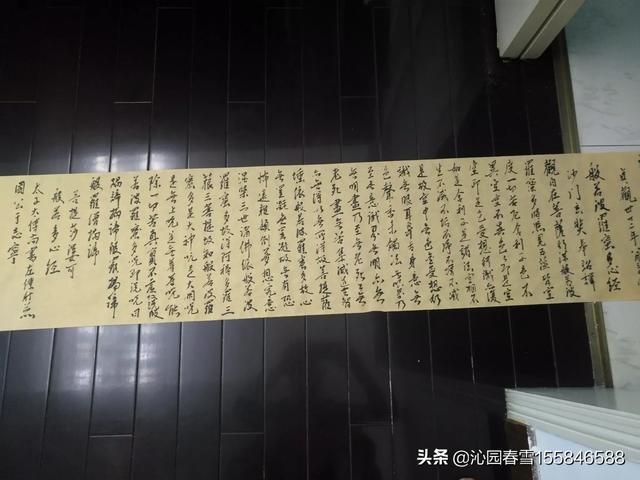 般若波羅蜜多心經
沙門玄奘奉詔譯
觀自在菩薩行深般若波
羅蜜多時照見五蘊皆空
度一切苦厄舍利子色不
異空空不異色色即是空
空即是色受想行識亦復
如是舍利子是諸法空相不
生不滅不垢不淨不增不減
是故空中無色無受想行
識無眼耳鼻舌身意無
色聲香味觸法無眼界乃
至無意識界無無明亦無
無明盡乃至無老死亦無
老死盡無苦集滅道無智
亦無得以無所得故菩提薩
埵依般若波羅蜜多故心
無罣礙無罣礙故無有恐
怖遠離顛倒夢想究竟
涅槃三世諸佛依般若波
羅蜜多故得阿耨多羅三
藐三菩提故知般若波羅
蜜多是大神咒是大明咒
是無上咒是無等等咒能
除一切苦真實不虛故說般
若波羅蜜多咒即說咒曰
揭諦揭諦般羅揭諦
般羅僧揭諦
菩提莎婆呵
般若多心經
太子太傅尚書左僕射燕
國公于志寧
头条 @沁园春雪155846588